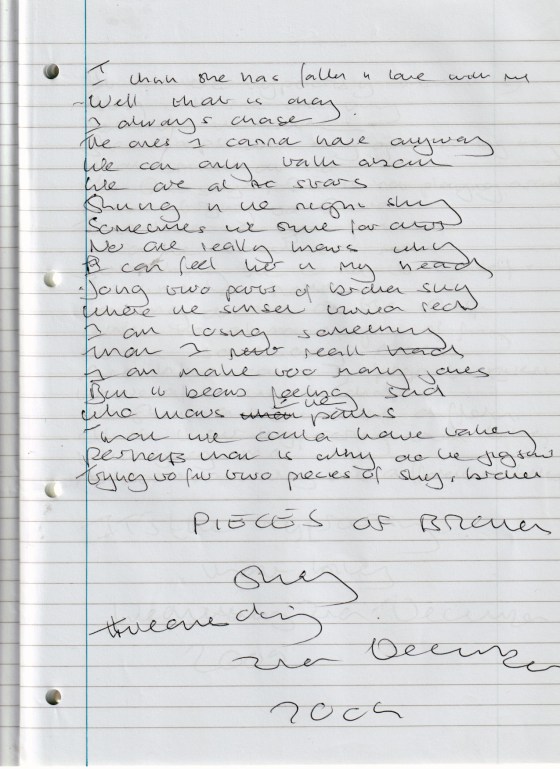 I think she has fallen in love with me
Well that is okay
I always chase
The ones I cannot have anyway
We can only talk about
We are all the stars
Shining in the night sky
Sometimes we shine far away
No one really knows why
I can feel her in my head
two parts of broken sky
where the sunset turned red
I am losing something
That I never really had
I can make too many jokes
But it beats feeling sad
Who knows the paths
That we could have taken
Perhaps that is why the jigsaw
Trying to fit two pieces of sky, broken
PIECES OF BROKEN
Sky
December